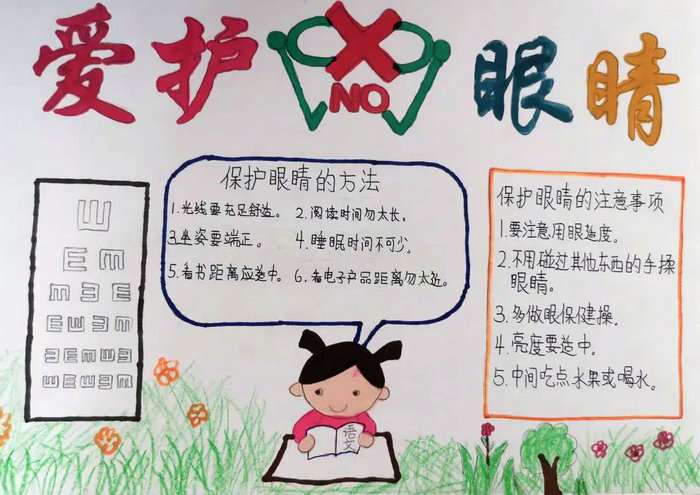 爱护 眼睛
NO
保护眼睛的方法
1.光线要充足舒适。 2.阅读时间勿太长。
3.坐姿要端正。 4.睡眠时间不可少。
5.看书距离应适中。 6.看电子产品距离勿太近。
保护眼睛的注意事项
1.要注意用眼适度。
2.不用碰过其他东西的手揉
眼睛。
3.多做眼保健操。
4.亮度要适中。
5.中间吃点水果或喝水。
语文
E
E M
M E E
E W E M
E E M W E
W E W E M